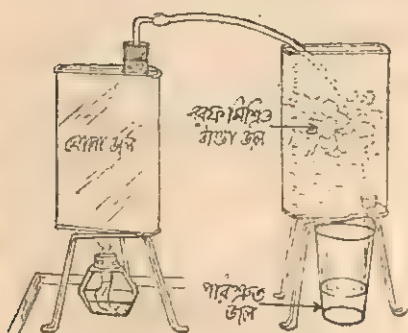 ঘোলা জল
বরফ মিশ্রিত
ঠাণ্ডা জল
পরিশ্রুত
জল